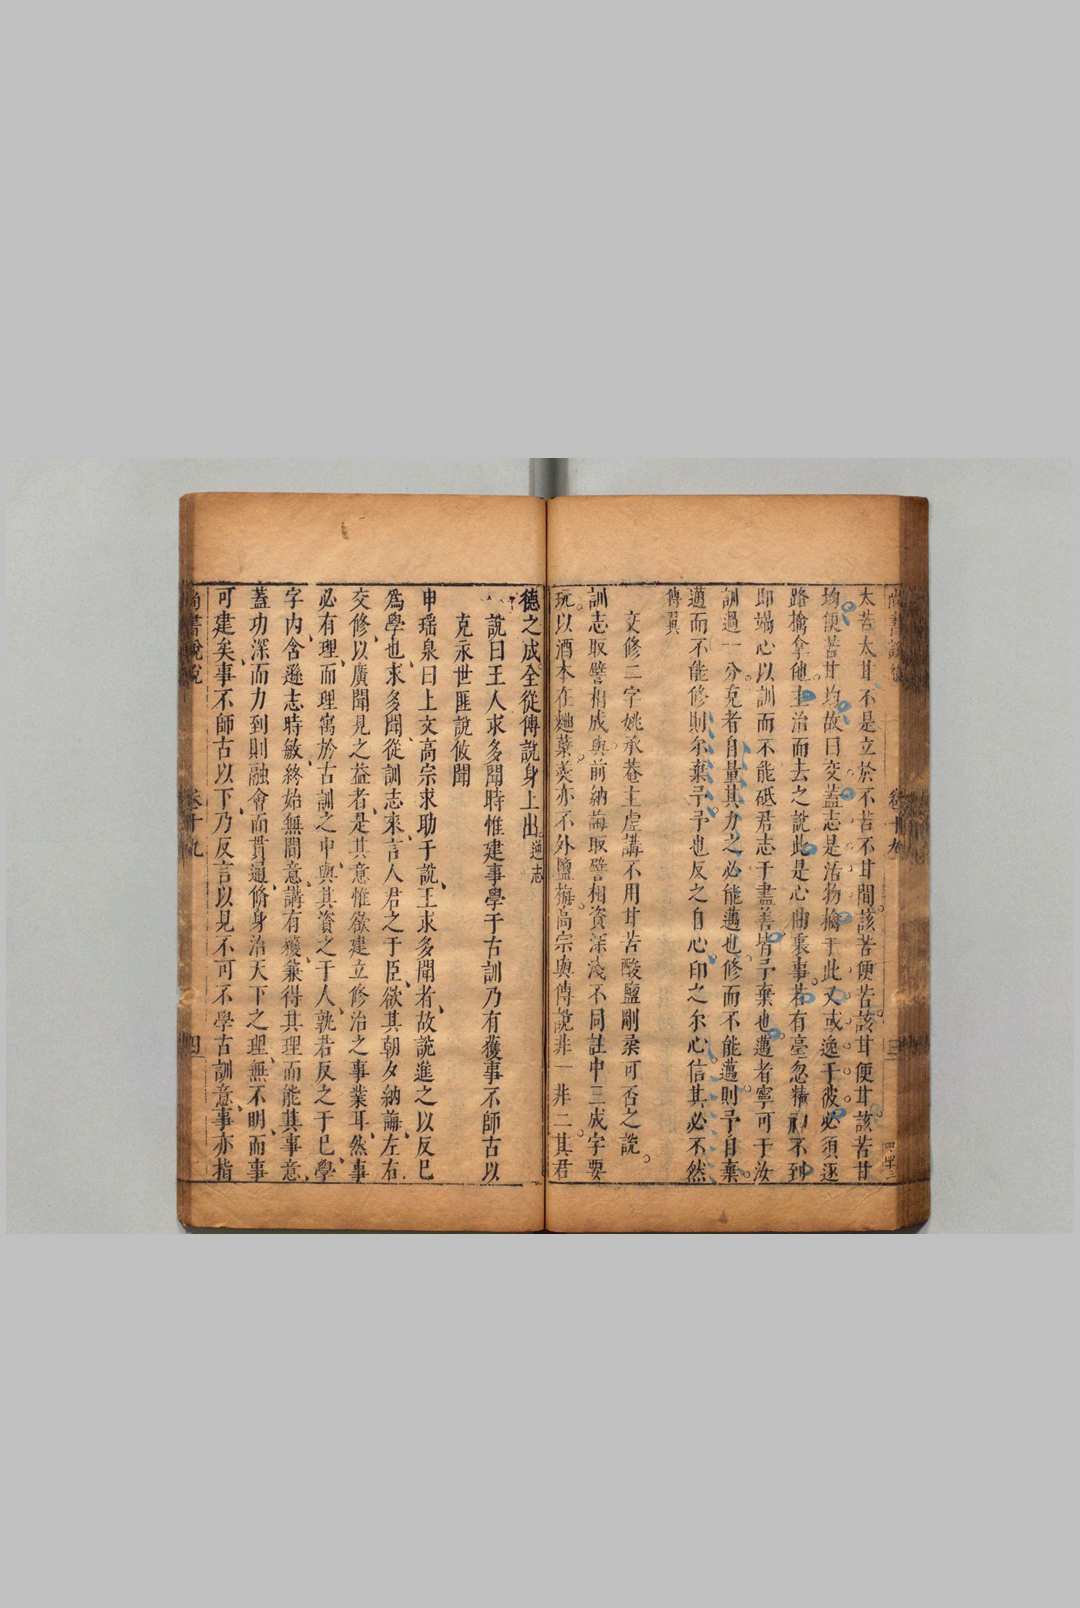 太苦太甘不是立於不苦不甘間該苦便苦該甘便甘該苦甘
均便苦甘均故曰交蓋志是活物擒于此又或逸于彼必須逐
路擒拿他主治而去之說此是心曲乘事若有毫忽精神不到
即竭心以訓而不能砥君志于盡善皆予棄也邁者寧可于汝
訓過一分克者自量其力之必能邁也修而不能邁則予自棄
邁而不能修則尔棄予予也反之自心印之尔心信其必不然
傳翼
交修二字姚承菴主虛講不用甘苦酸鹽剛柔可否之說
訓志取譬相成與前納誨取譬相資深淺不同註中三成字要
玩以酒本在麯蘖羹亦不外鹽梅高宗與傳說非一非二其君
德之成全從傅說身上出 遜志
說曰王人求多聞時惟建事學于古訓乃有獲事不師古以
克永世匪說攸聞
申瑶泉曰上文高宗求助于說王求多聞者故說進之以反已
為學也求多聞從訓志來言人君之于臣欲其朝夕納誨左右
交修以廣聞見之益者是其意惟欲建立修治之事業耳然事
必有理而理寓於古訓之中與其資之于人孰若反之于已學
字內含遜志時敏終始無間意講有獲兼得其理而能其事意
蓋功深而力到則融會而貫通脩身治天下之理無不明而事
可建矣事不師古以下乃反言以見不可不學古訓意事亦指
尚書說
卷十九
四